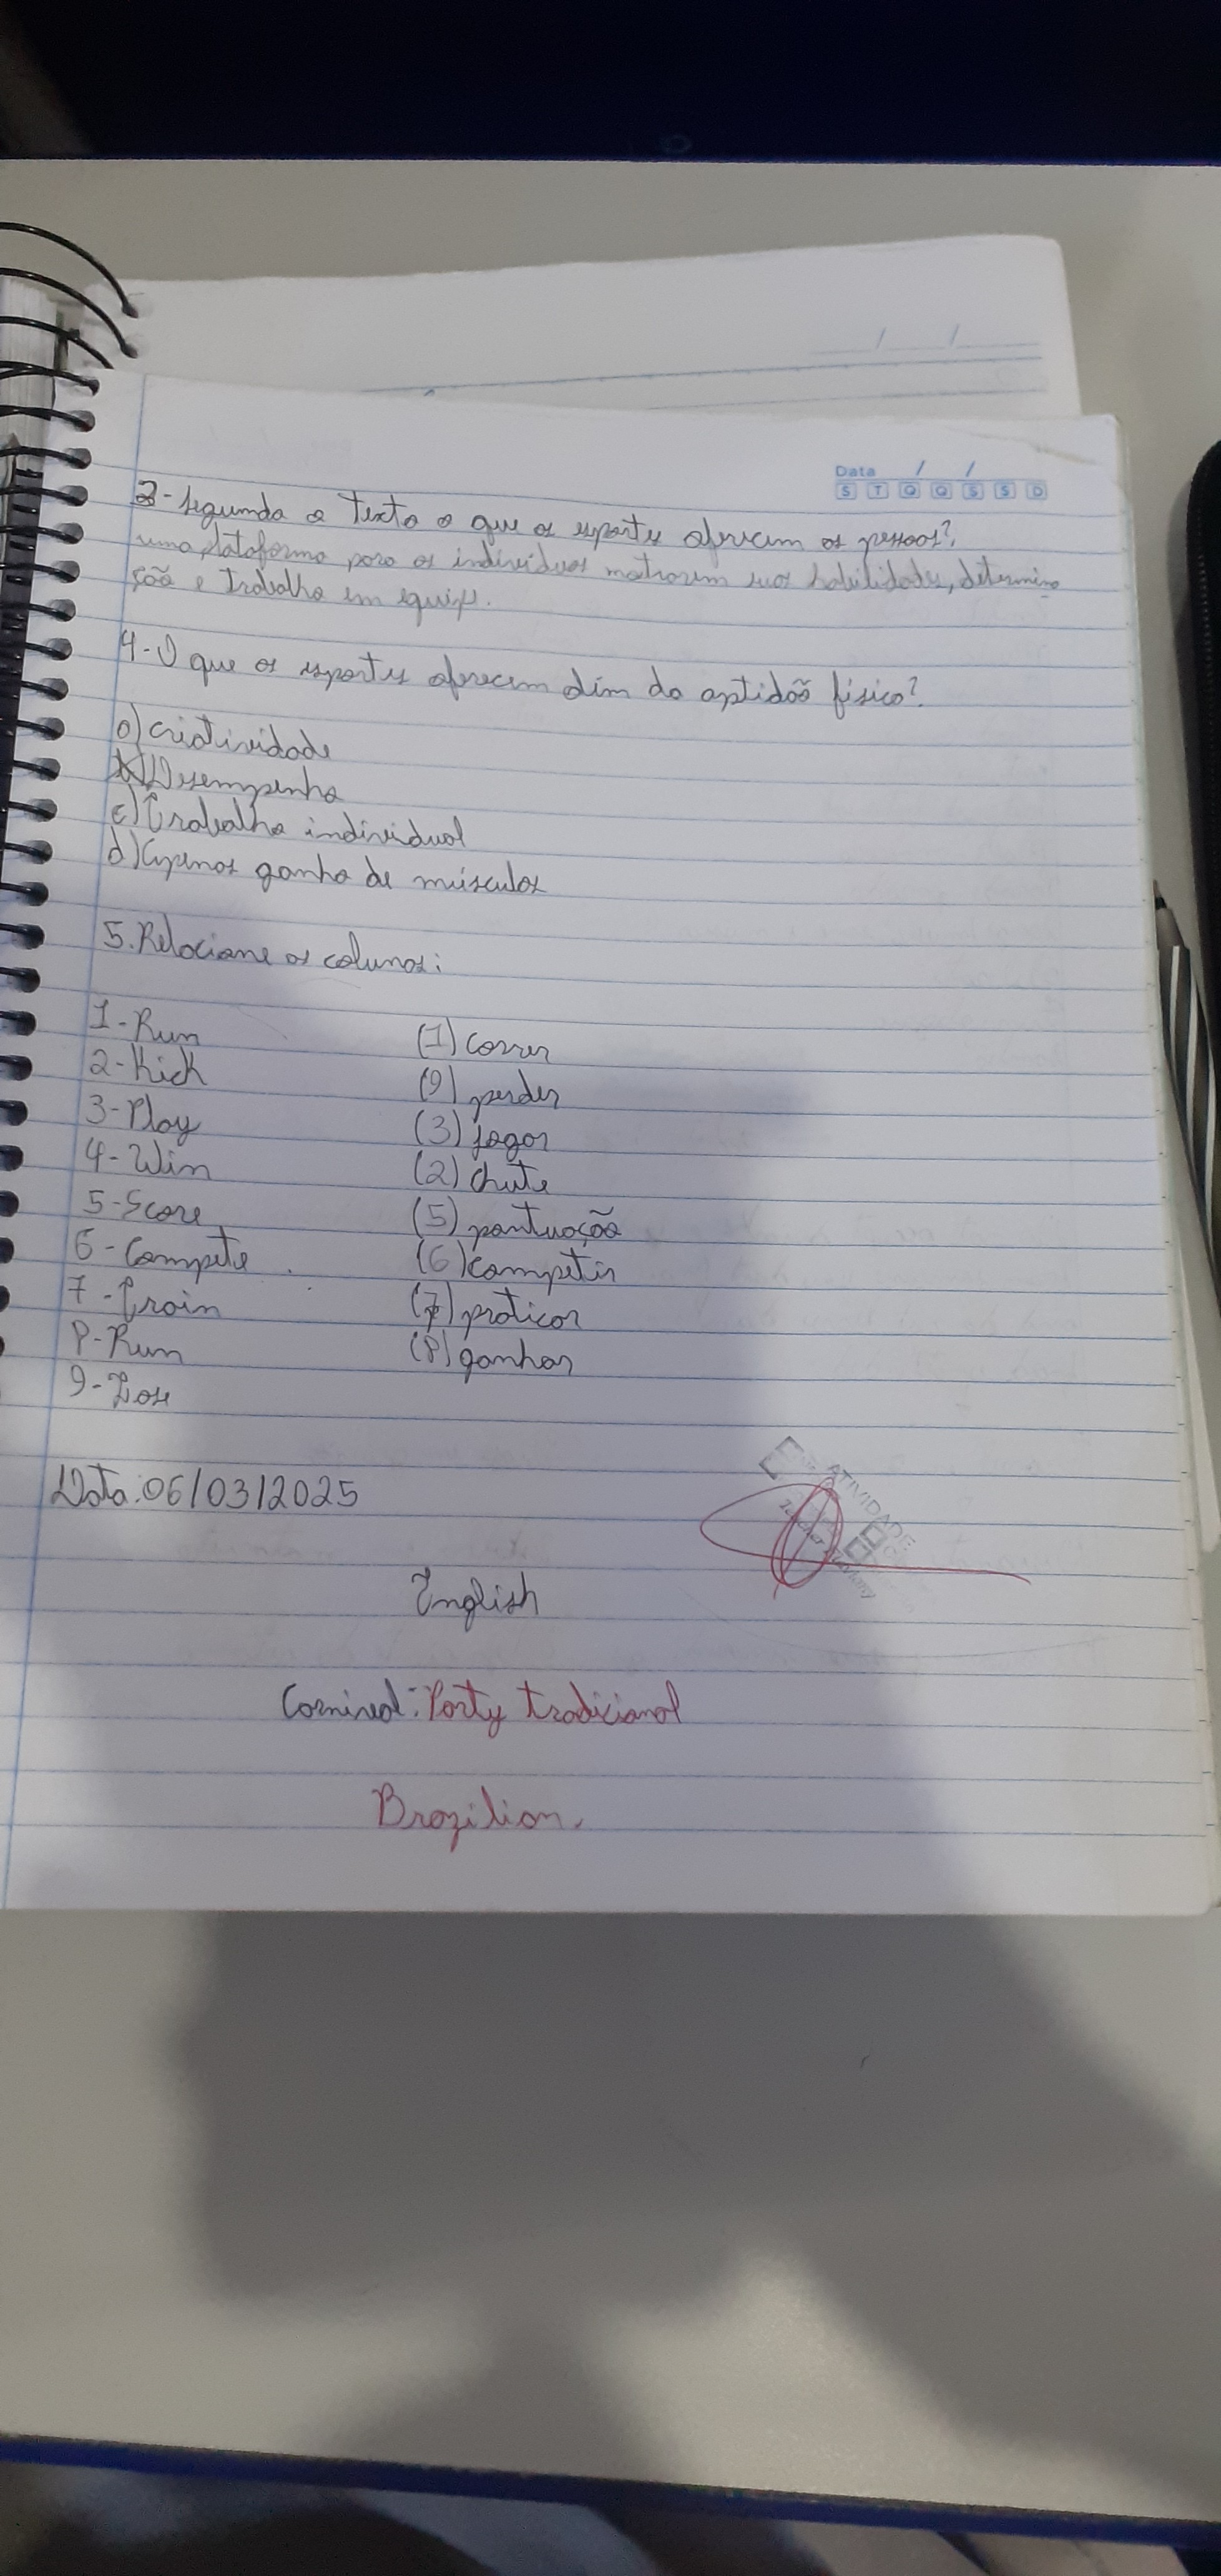 Data / /
S T Q Q S S D
3-Segundo o texto o que os esportes oferecem as pessoas?
uma plataforma para os indivíduos mostrarem suas habilidades, determina
ção e trabalho em equipe.
4-O que os esportes oferecem além da aptidão física?
a) criatividade
b) Desempenho
c) Trabalho individual
d) Apenas ganho de músculos
5. Relacione as colunas:
1-Run (1) correr
2-Kick (9) perder
3-Play (3) jogar
4-Win (2) chute
5-Score (5) pontuação
6-Compete (6) competir
7-Train (7) praticar
8-Run (8) ganhar
9-Lose
Data: 06/03/2025
ATIVIDADE
Teacher
English
Carnival: Party tradicional
Brazilian.